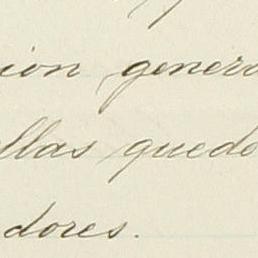 ion genera
ellas quedo
dores.